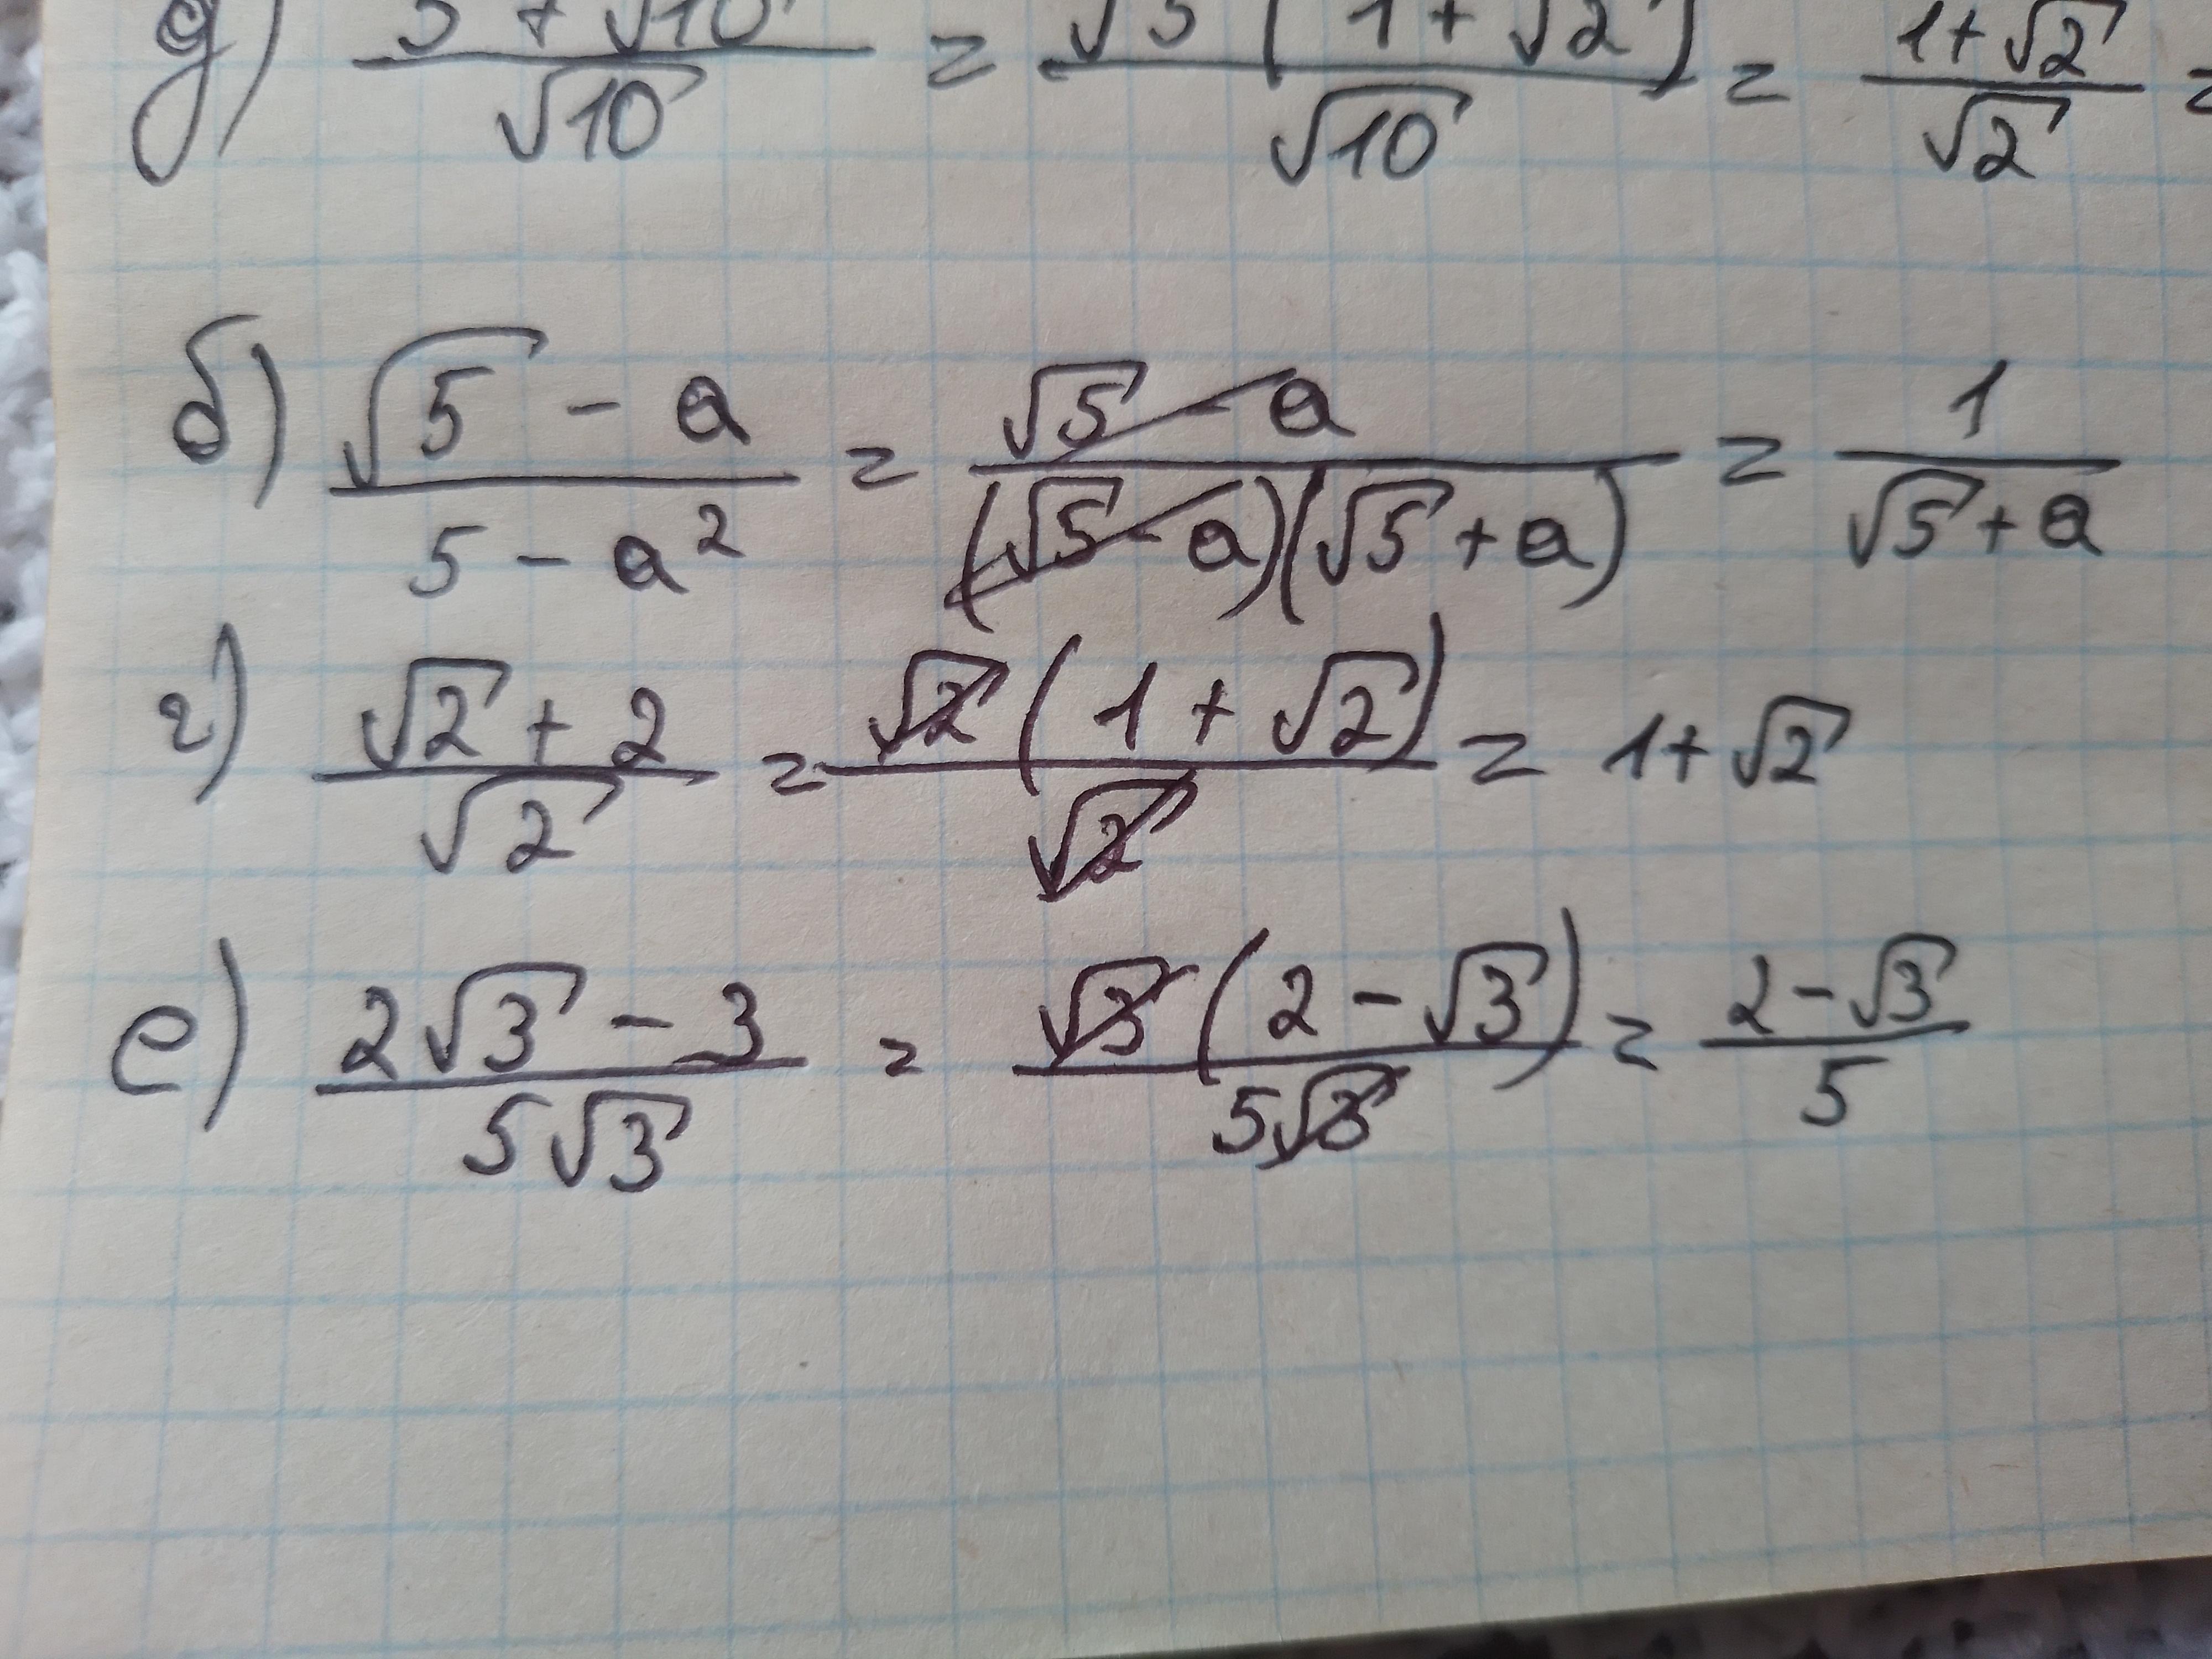 д) (5 + √10)/√10 = √5(1 + √2)/√10 = (1+√2)/√2 =
б) (√5 - a)/(5 - a²) = (√5 - a)/((√5 - a)(√5 + a)) = 1/(√5 + a)
г) (√2 + 2)/√2 = √2(1 + √2)/√2 = 1+√2
е) (2√3 - 3)/(5√3) = √3(2 - √3)/(5√3) = (2 - √3)/5